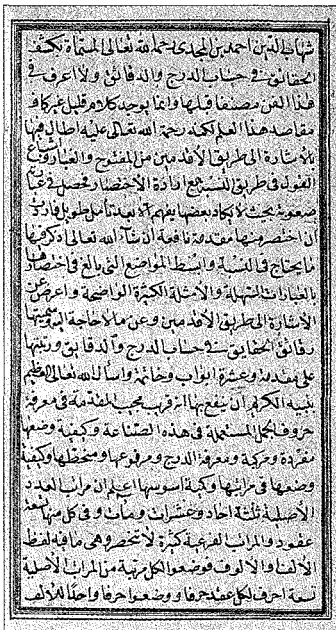 شهاب الدين احمد بن المجدي رحمه الله تعالى المسماة بكشف
الحقائق في حساب الدرج والدقائق ولا اعرف في
هذا الفن مصنفا قبلها وانما يوجد كلام قليل غير كاف
مقاصد هذا العلم لكنه رحمة الله تعالى عليه اطال فيها
بالاشارة الى طريق الاقدمين من المفتوح والغبار واشباع
القول في طريق التسيير مع ارادة الاختصار فحصل في عبارته
صعوبة بحيث لا يكاد بعضها يفهم الا بعد تأمل طويل فاردت
ان اختصر منها مقدمة نافعة ان شاء الله تعالى اذكر فيها
ما يحتاج في النسبة وابسط المواضع التي بالغ في اختصارها
بالعبارات السهلة والامثلة الكثيرة الواضحة واعرض عن
الاشارة الى طريق الاقدمين وعن ما لا حاجة اليه وسميتها
رقائق الحقايق في حساب الدرج والدقايق ورتبتها
على مقدمة وعشرة ابواب وخاتمة واسال الله تعالى العظيم
بنبيه الكريم ان ينفع بها انه قريب مجيب المقدمة في معرفة
حروف الجمل المستعملة في هذه الصناعة وكيفية وضعها
مفردة ومركبة ومعرفة الدرج ومرفوعها ومنحطها وكيفية
وضعها في مراتبها وكمية اسوسها اعلم ان مراتب العدد
الاصلية ثلثة احاد وعشرات ومآت وفي كل منها تسعة
عقود والمراتب الفرعية كثيرة لا تنحصر وهي ما فيه لفظ
الالف والالوف فوضعوا لكل مرتبة من المراتب الاصلية
تسعة احرف لكل عقد حرفا ووضعوا حرفا واحدا للالف